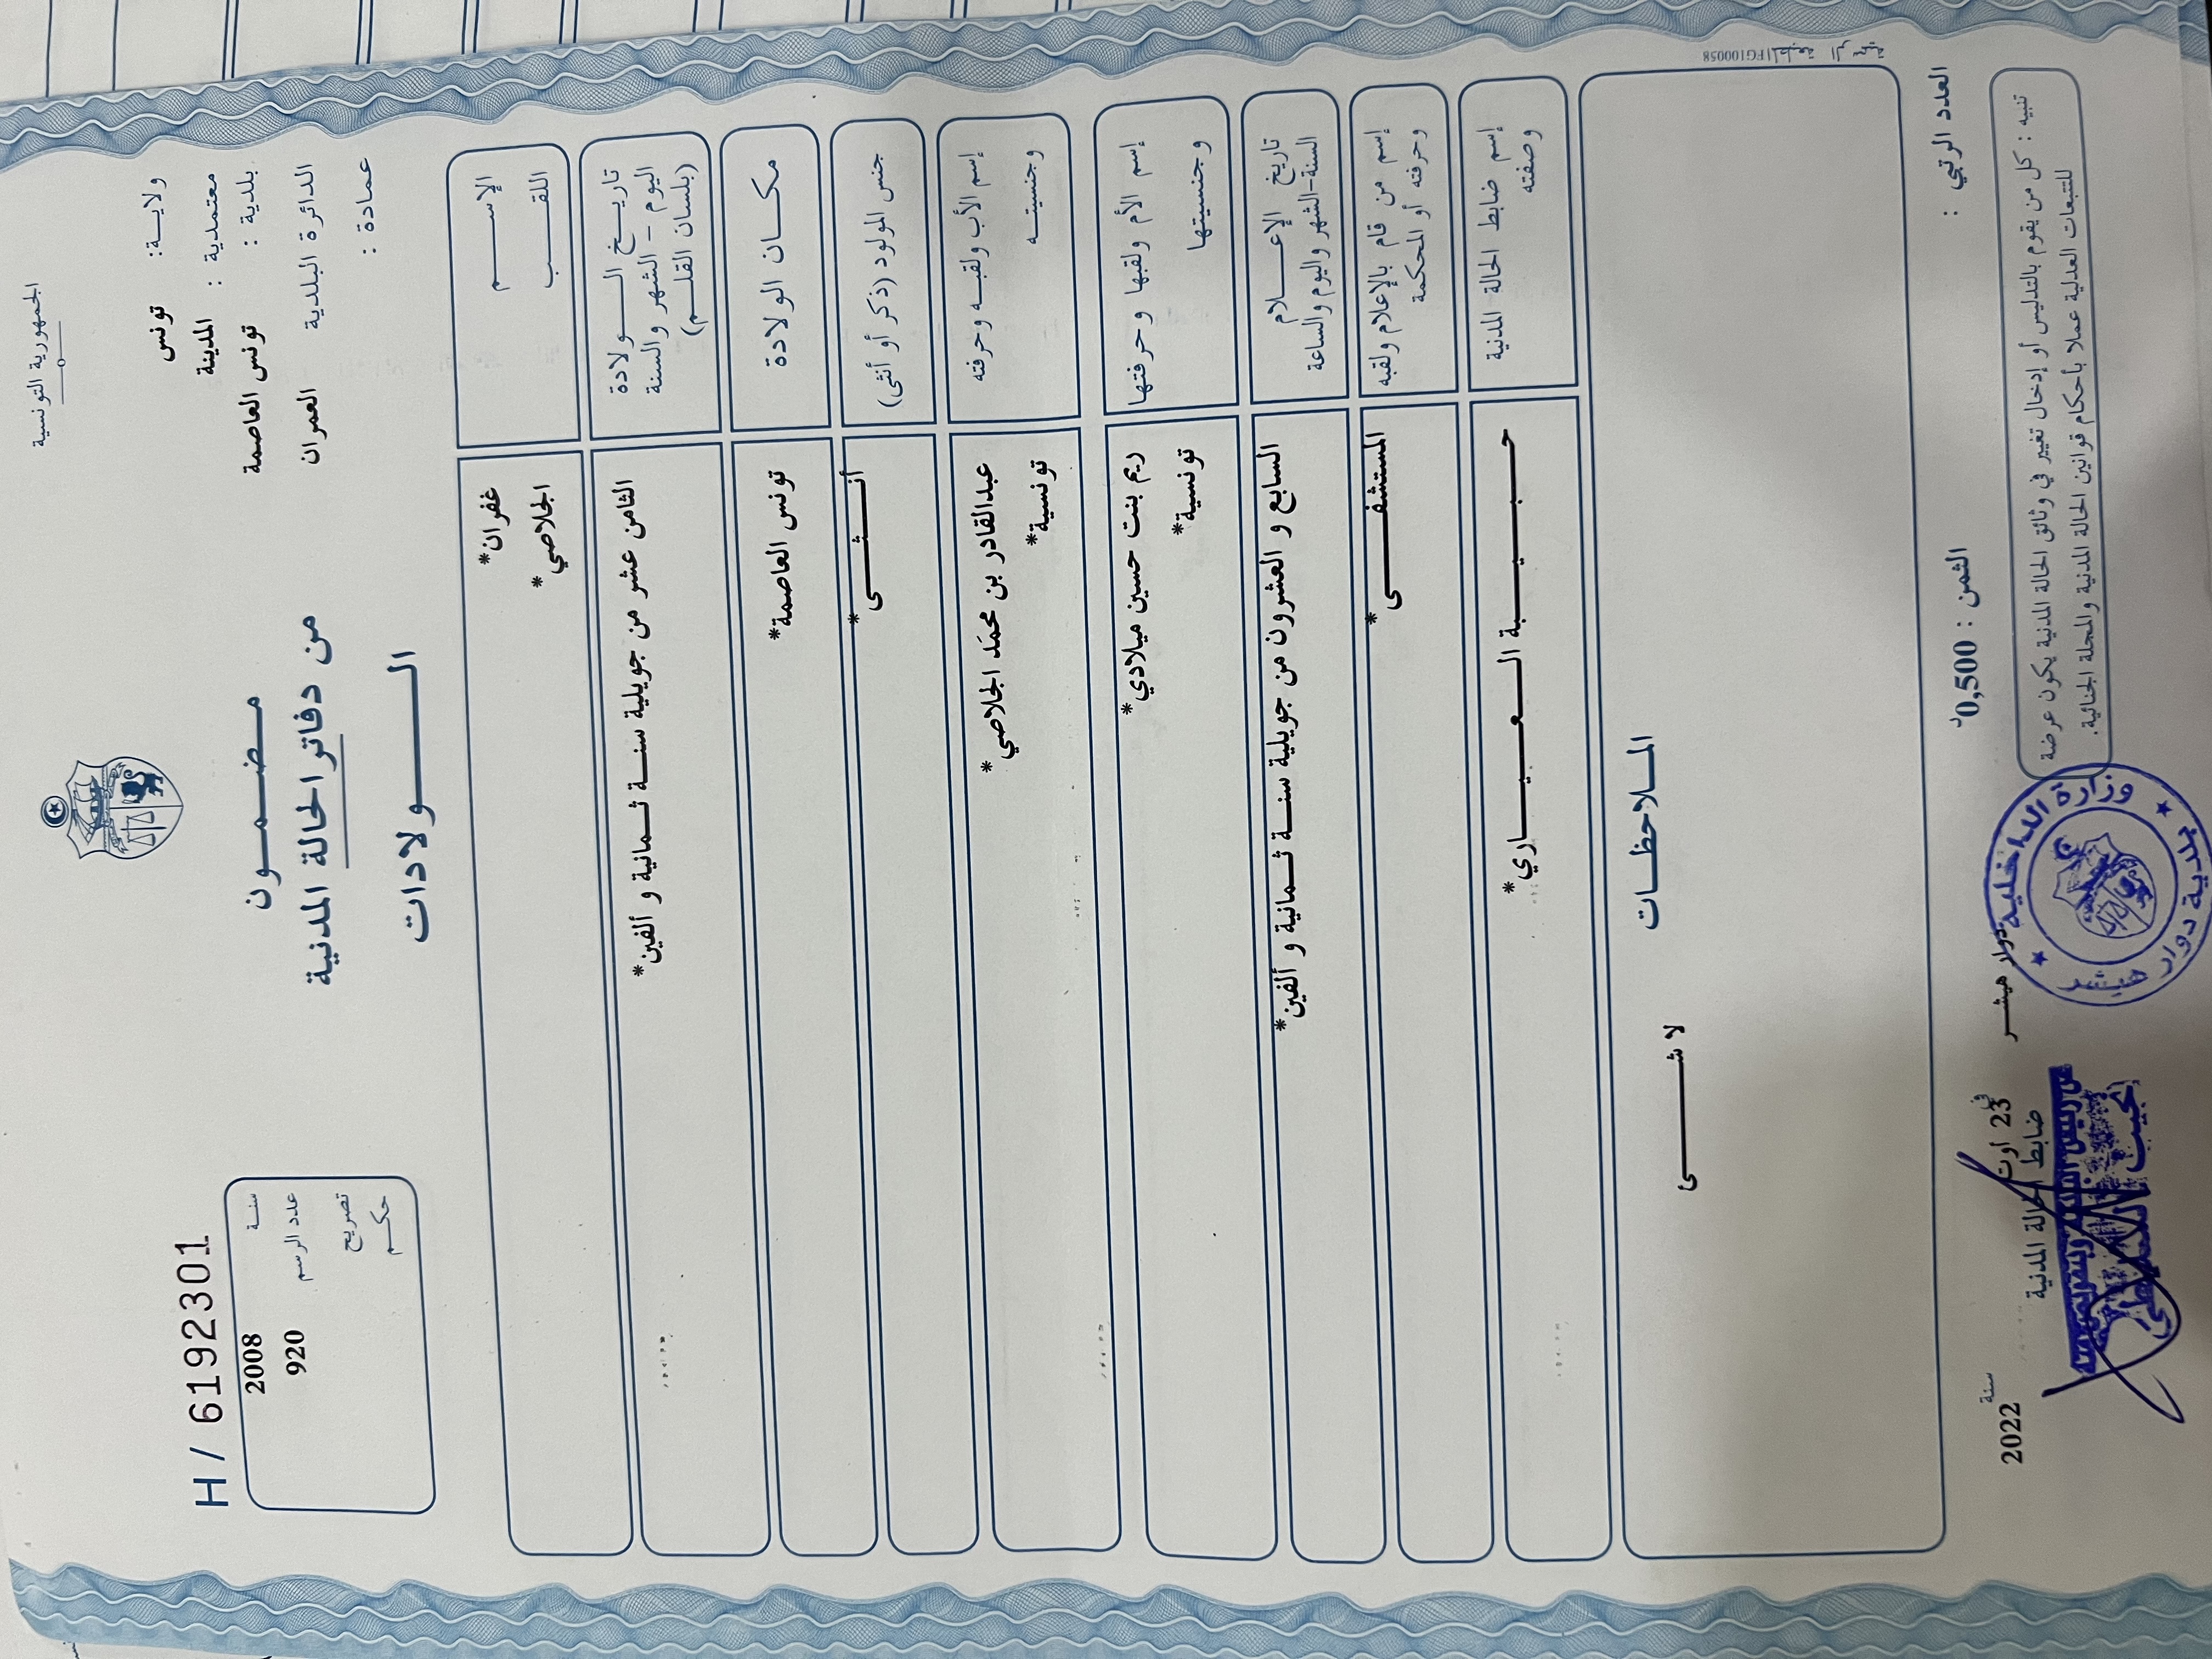 الجمهورية التونسية
ولاية: تونس
معتمدية : المدينة
بلدية : تونس العاصمة
الدائرة البلدية العمران
عمادة :
مضمون
من دفاتر الحالة المدنية
الولادات
H / 6192301
سنة 2008
عدد الرسم 920
تصريح
حكم
الإسم غفران*
اللقب الجلاصي*
تاريخ الولادة
اليوم - الشهر والسنة
(بلسان القلم)
الثامن عشر من جويلية سنة ثمانية و ألفين*
مكان الولادة تونس العاصمة*
جنس المولود (ذكر أو أنثى) أنثى*
إسم الأب ولقبه وحرفته عبدالقادر بن محمد الجلاصي*
وجنسيته تونسية*
إسم الأم ولقبها وحرفتها ريم بنت حسين ميلادي*
وجنسيتها تونسية*
تاريخ الإعلام
السنة-الشهر واليوم والساعة
السابع و العشرون من جويلية سنة ثمانية و ألفين*
إسم من قام بالإعلام ولقبه
وحرفته أو المحكمة
المستشفى*
إسم ضابط الحالة المدنية
وصفته
حبيبة العياري*
الملاحظات
لا شئ
العدد الرتبي :
الثمن : 0,500د
تنبيه : كل من يقوم بالتدليس أو إدخال تغيير في وثائق الحالة المدنية يكون عرضة
للتتبعات العدلية عملا بأحكام قوانين الحالة المدنية والمجلة الجنائية.
دوار هيشر في 23 اوت سنة 2022
ضابط الحالة المدنية
وزارة الداخلية
بلدية دوار هيشر